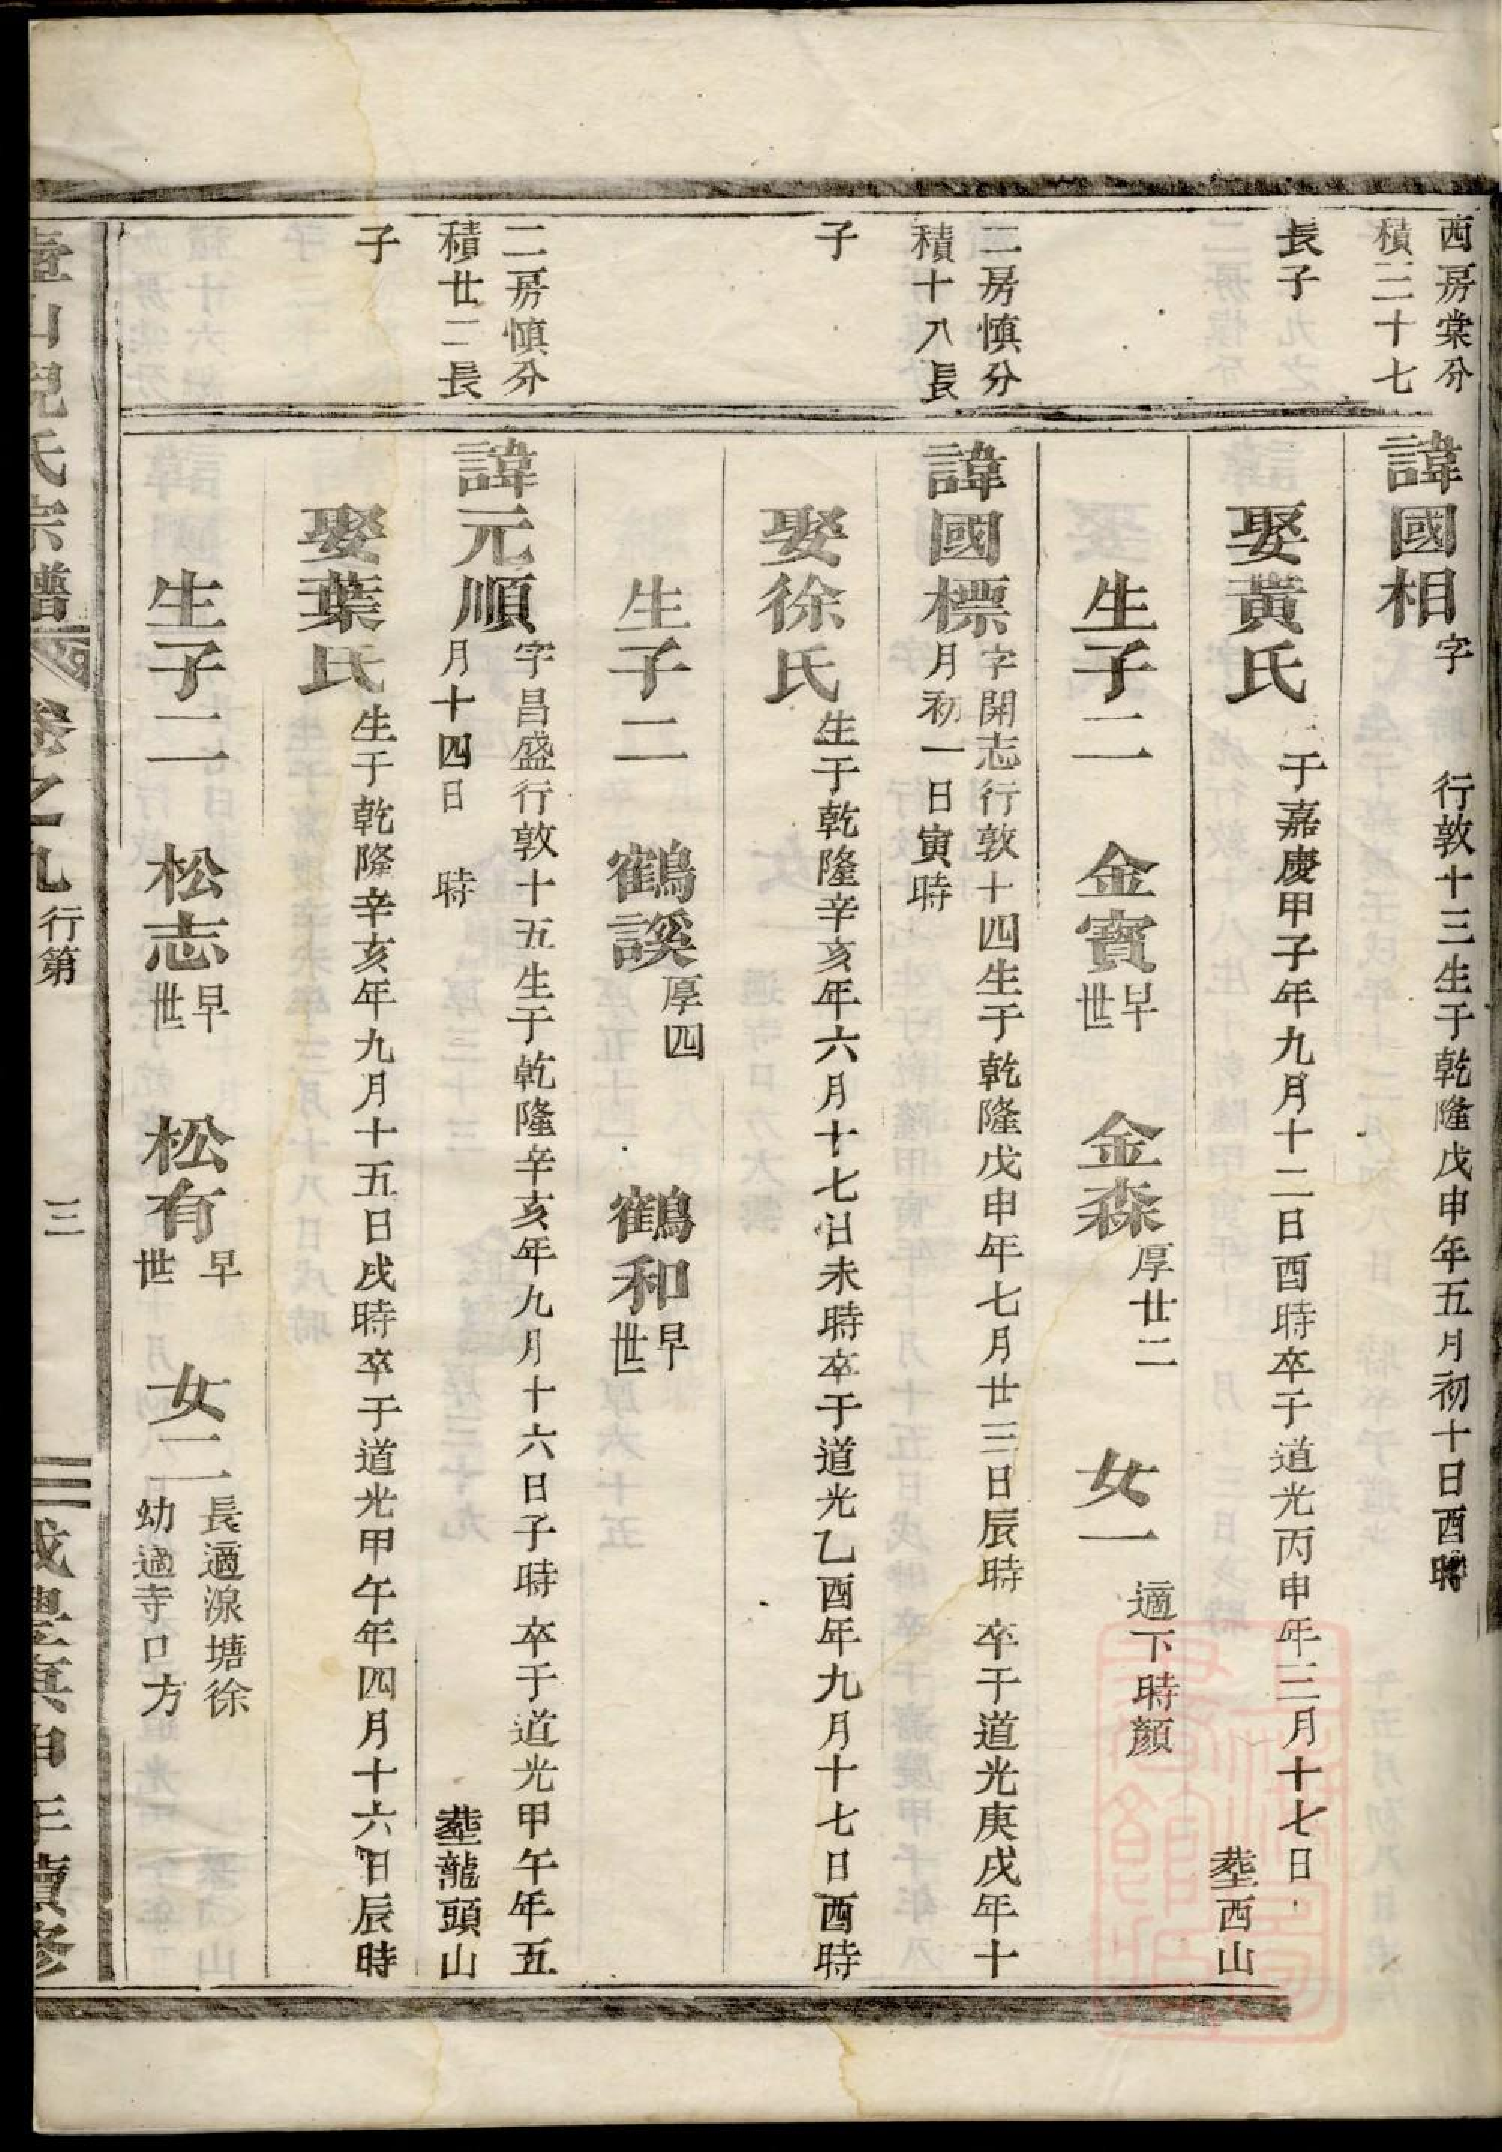 西房棠分
積三十七
長子
諱國相
字 行敦十三生于乾隆戊申年五月初十日酉時
娶黃氏
于嘉慶甲子年九月十二日酉時卒于道光丙申年三月十七日
塟西山
生子二 金寶早世 金森厚廿二 女一適下時顔
二房慎分
積十八長
子
諱國標
字開志行敦十四生于乾隆戊申年七月廿三日辰時 卒于道光庚戌年十
月初一日寅時
娶徐氏
生于乾隆辛亥年六月十七日未時卒于道光乙酉年九月十七日酉時
生子二 鶴謑厚四 鶴和早世
二房慎分
積廿二長
子
諱元順
字昌盛行敦十五生于乾隆辛亥年九月十六日子時 卒于道光甲午年五
月十四日 時 塟龍頭山
娶葉氏
生于乾隆辛亥年九月十五日戌時卒于道光甲午年四月十六日辰時
生子二 松志早世 松有早世 女二
長適湶塘徐
幼適寺口方
壼山倪氏宗譜 卷之九 行第 三 咸豐庚申年續修